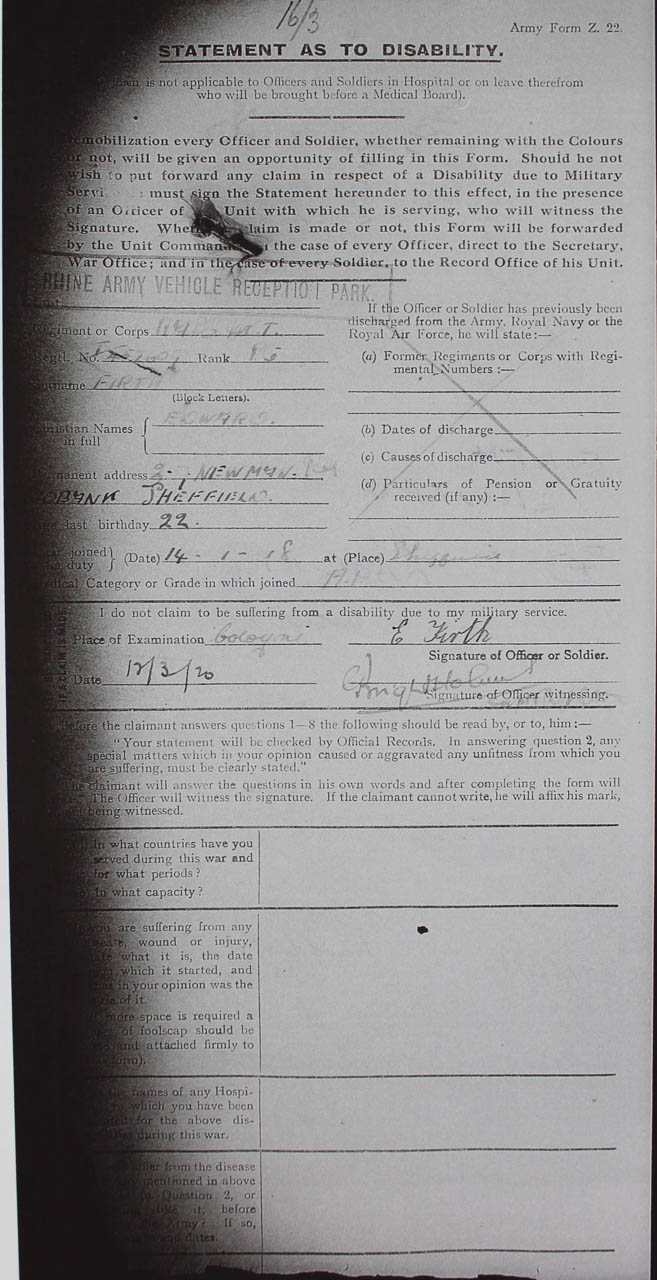 16/3
Army Form Z. 22.
STATEMENT AS TO DISABILITY.
is not applicable to Officers and Soldiers in Hospital or on leave therefrom
who will be brought before a Medical Board).
emobilization every Officer and Soldier, whether remaining with the Colours
or not, will be given an opportunity of filling in this Form. Should he not
wish to put forward any claim in respect of a Disability due to Military
Servi : must sign the Statement hereunder to this effect, in the presence
of an Officer of Unit with which he is serving, who will witness the
Signature. Whet claim is made or not, this Form will be forwarded
by the Unit Comman the case of every Officer, direct to the Secretary,
War Office; and in the case of every Soldier, to the Record Office of his Unit.
RHINE ARMY VEHICLE RECEPTION PARK.
Regiment or Corps
Regtl. No. Rank
Surname FIRTH
(Block Letters).
istian Names EDWARD.
in full
manent address 2 NEWMAN
BANK SHEFFIELD.
last birthday 22.
joined
duty (Date) 14 - 1 - 18 at (Place)
ical Category or Grade in which joined A
If the Officer or Soldier has previously been
discharged from the Army, Royal Navy or the
Royal Air Force, he will state:—
(a) Former Regiments or Corps with Regi-
mental Numbers :—
(b) Dates of discharge
(c) Causes of discharge
(d) Particulars of Pension or Gratuity
received (if any) :—
I do not claim to be suffering from a disability due to my military service.
Place of Examination Cologne E Firth
Signature of Officer or Soldier.
Date 12/3/20
Signature of Officer witnessing.
IF A CLAIM IS MADE
Before the claimant answers questions 1—8 the following should be read by, or to, him :—
"Your statement will be checked by Official Records. In answering question 2, any
special matters which in your opinion caused or aggravated any unfitness from which you
are suffering, must be clearly stated."
The claimant will answer the questions in his own words and after completing the form will
The Officer will witness the signature. If the claimant cannot write, he will affix his mark,
being witnessed.
In what countries have you
served during this war and
for what periods?
In what capacity?
you are suffering from any
disease, wound or injury,
what it is, the date
which it started, and
in your opinion was the
of it.
more space is required a
of foolscap should be
and attached firmly to
form).
the names of any Hospi-
which you have been
for the above dis-
during this war.
from the disease
mentioned in above
to Question 2, or
like it, before
Army? If so,
and dates.